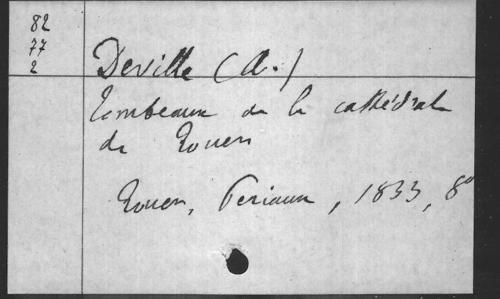 82
77
2
Deville (A.)
Tombeaux de la cathédrale
de Rouen
Rouen, Periaux, 1833, 8º